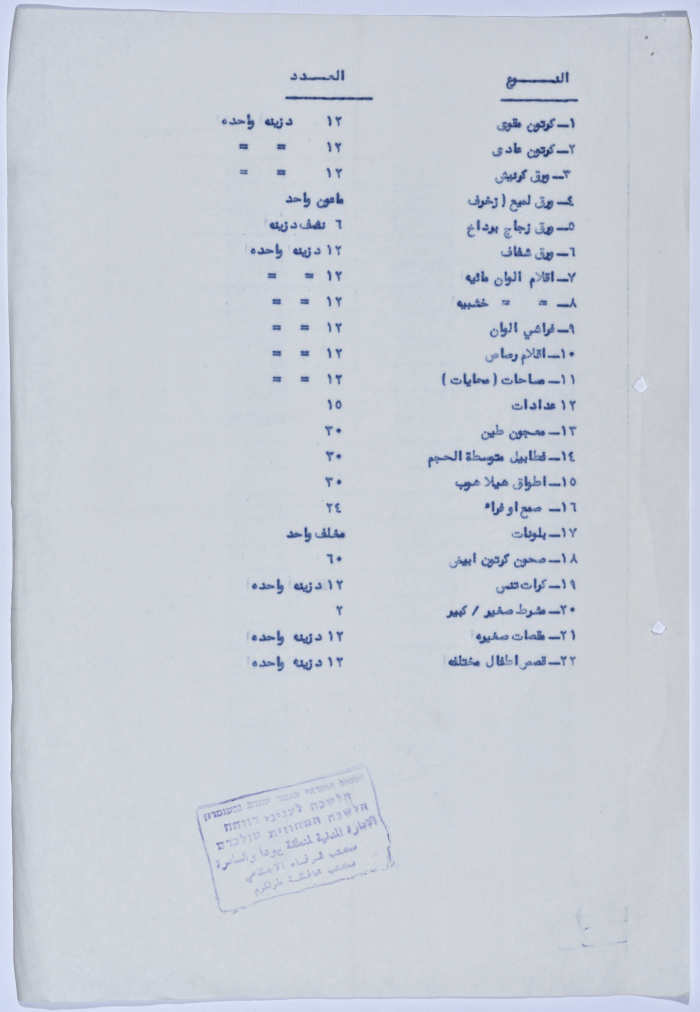 النـــــوع العـــدد
١ــ كرتون مقوى ١٢ دزينه واحده
٢ــ كرتون عادى ١٢ = =
٣ــ ورق كرنيش ١٢ = =
٤ــ ورق لميع ( زخرف ماعون واحد
٥ــ ورق زجاج برداخ ٦ نصف دزينه
٦ــ ورق شفاف ١٢ دزينه واحده
٧ــ اقلام الوان مائيه ١٢ = =
٨ــ = = خشبيه ١٢ = =
٩ــ فراشي الوان ١٢ = =
١٠ــ اقلام رصاص ١٢ = =
١١ــ مساحات ( محايات ) ١٢ = =
١٢ عدادات ١٥
١٣ــ معجون طين ٣٠
١٤ــ فطابيل متوسطة الحجم ٣٠
١٥ــ اطواق هيلا هوب ٣٠
١٦ــ صمغ او فراء ٢٤
١٧ــ بلونات مغلف واحد
١٨ــ صحون كرتون ابيض ٦٠
١٩ــ كرات تنس ١٢ دزينه واحده
٢٠ــ مشرط صغير / كبير ٢
٢١ــ مقصات صغيره ١٢ دزينه واحده
٢٢ــ قصص اطفال مختلفه ١٢ دزينه واحده
הלשכה לעניני רווחה
הלשכה המחוזית טולכרם
الادارة المدنية لمنطقة يهودا والسامرة
مكتب الرفاه الاجتماعي
مكتب محافظة طولكرم